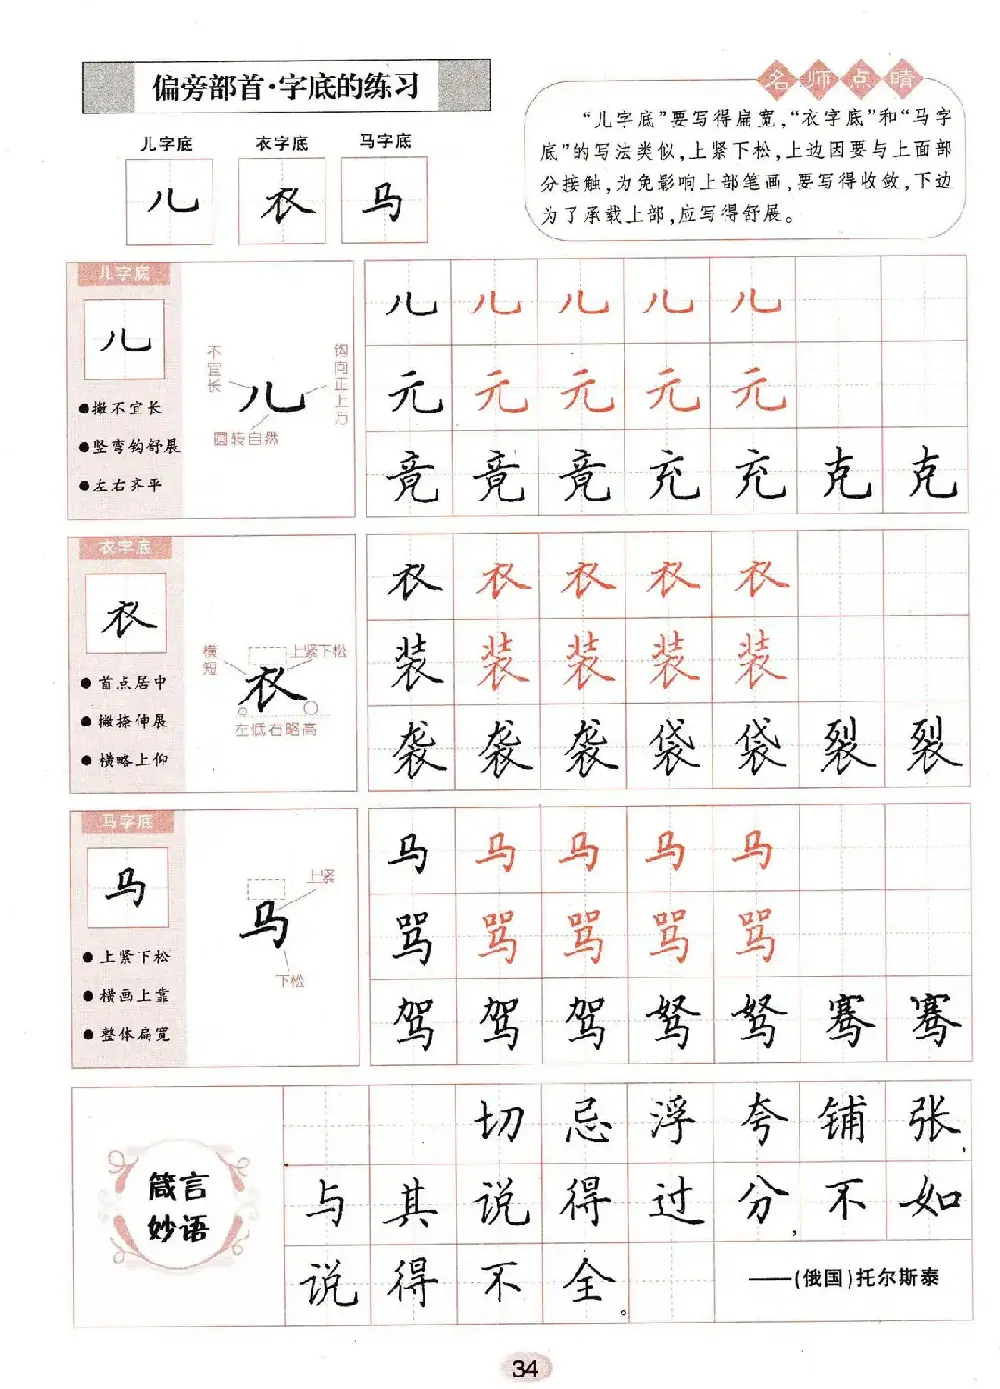 偏旁部首·字底的练习
名师点睛
“儿字底”要写得扁宽，“衣字底”和“马字
底”的写法类似，上紧下松，上边因要与上面部
分接触，为免影响上部笔画，要写得收敛，下边
为了承载上部，应写得舒展。
儿字底 衣字底 马字底
儿 衣 马
儿字底
儿
●撇不宜长
●竖弯钩舒展
●左右齐平
不宜长
钩向正上方
儿
圆转自然
儿 儿 儿 儿 儿
元 元 元 元 元
竟 竟 竟 充 充 克 克
衣字底
衣
●首点居中
●撇捺伸展
●横略上仰
横短
上紧下松
衣
左低右略高
衣 衣 衣 衣 衣
装 装 装 装 装
袭 袭 袭 袋 袋 裂 裂
马字底
马
●上紧下松
●横画上靠
●整体扁宽
上紧
马
下松
马 马 马 马 马
骂 骂 骂 骂 骂
驾 驾 驾 驽 驽 骞 骞
箴言
妙语
切忌浮夸铺张，
与其说得过分，不如
说得不全。
——（俄国）托尔斯泰
34